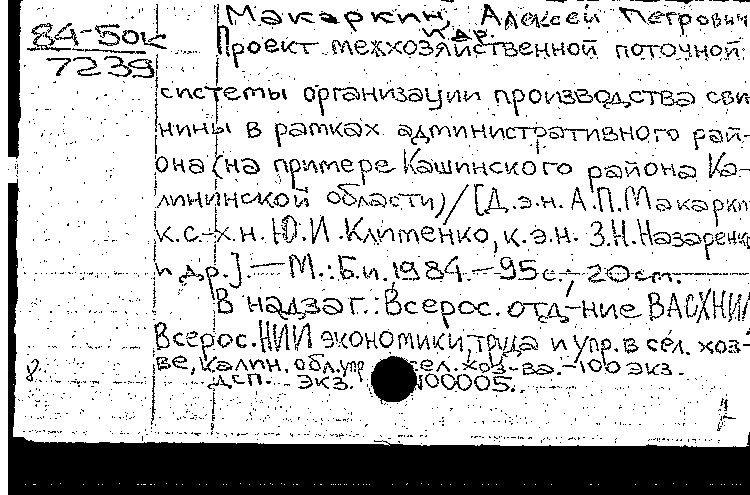 84-50к
7239
Макаркин, Алексей Петрович
и др.
Проект межхозяйственной поточной
системы организации производства сви
нины в рамках административного рай-
она (на примере Кашинского района Ка-
лининской области) / [Д.э.н. А.П. Макаркин
к.с.-х.н. Ю.И. Клименко, к.э.н. З.Н. Назаренко
и др.]. — М.: Б.и. 1984. — 95с.; 20см.
В надзаг.: Всерос. отд-ние ВАСХНИЛ
Всерос. НИИ экономики, труда и упр. в сел. хоз-
ве, Калин. обл. упр сел. хоз-ва. - 100 экз.
8.
дсп. экз. N00005.